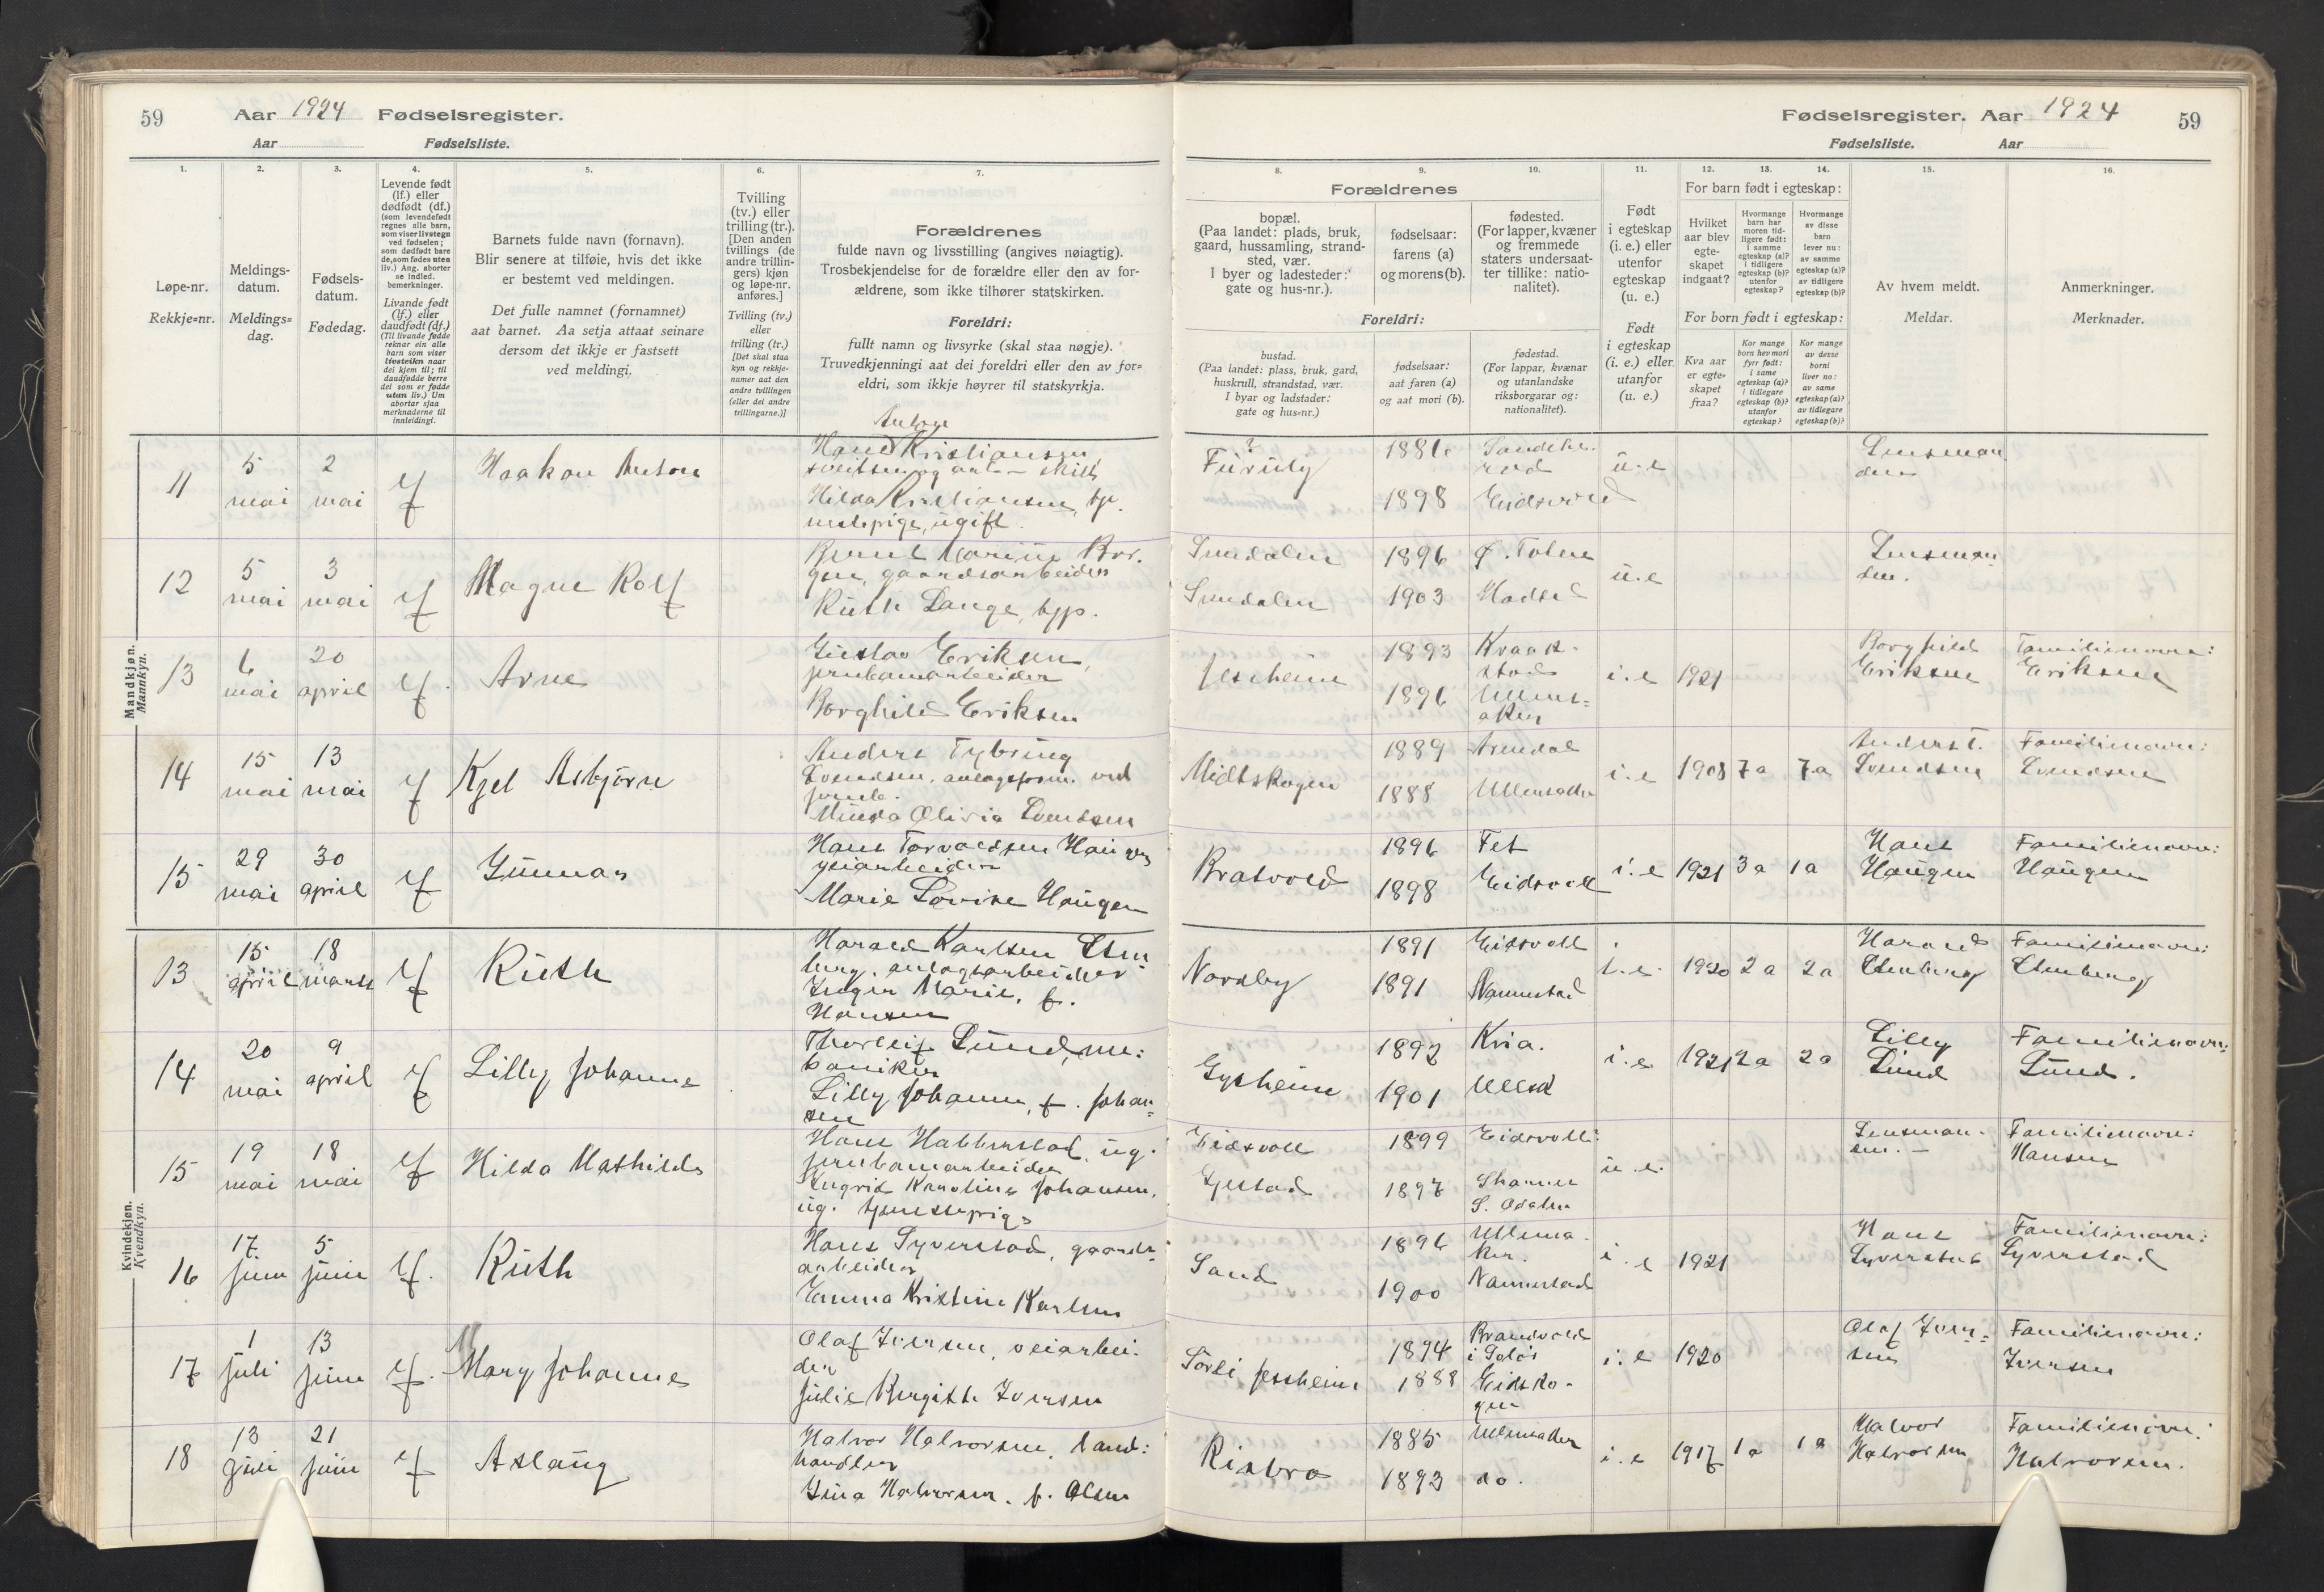 59 Aar 1924 Fødselsregister.
Aar Fødselsliste.
Fødselsregister. Aar 1924 59
Fødselsliste. Aar
1. 2. 3. 4. 5. 6. 7.
Løpe-nr.
Rekkje=nr.
Meldings-
datum.
Meldings=
dag.
Fødsels-
datum.
Fødedag.
Levende født
(lf.) eller
dødfødt (df.)
(som levendefødt
regnes alle barn,
som viser livstegn
ved fødselen;
som dødfødt bare
de, som fødes uten
liv.) Ang. aborter
se indled.
bemerkninger.
Livande født
(lf.) eller
daudfødt (df.)
(Til livande fødde
reknar ein alle
barn som viser
livsteikn naar
dei kjem til; til
daudfødde berre
dei som er fødde
utan liv.) Um
abortar sjaa
merknaderne til
innleidingi.
Barnets fulde navn (fornavn).
Blir senere at tilføie, hvis det ikke
er bestemt ved meldingen.
Det fulle namnet (fornamnet)
aat barnet. Aa setja attaat seinare
dersom det ikkje er fastsett
ved meldingi.
Tvilling
(tv.) eller
trilling (tr.).
[Den anden
tvillings (de
andre trillin-
gers) kjøn
og løpe-nr.
anføres.]
Tvilling (tv.)
eller
trilling (tr.)
[Det skal staa
kyn og rekkje-
numer aat den
andre tvillingen
(eller dei andre
trillingarne.)]
Forældrenes
fulde navn og livsstilling (angives nøiagtig).
Trosbekjendelse for de forældre eller den av for-
ældrene, som ikke tilhører statskirken.
Foreldri:
fullt namn og livsyrke (skal staa nøgje).
Truvedkjenningi aat dei foreldri eller den av for=
eldri, som ikkje høyrer til statskyrkja.
8. 9. 10. 11. 12. 13. 14. 15. 16.
Forældrenes
bopæl.
(Paa landet: plads, bruk,
gaard, hussamling, strand-
sted, vær.
I byer og ladesteder:
gate og hus-nr.).
fødselsaar:
farens (a)
og morens (b).
fødested.
(For lapper, kvæner
og fremmede
staters undersaat-
ter tillike: natio-
nalitet).
Foreldri:
bustad.
(Paa landet: plass, bruk, gard,
huskrull, strandstad, vær.
I byar og ladstader:
gate og hus=nr.)
fødselsaar:
aat faren (a)
og aat mori (b).
fødestad.
(For lappar, kvænar
og utanlandske
riksborgarar og:
nationalitet).
Født
i egteskap
(i. e.) eller
utenfor
egteskap
(u. e.)
Født
i egteskap
(i. e.) eller
utanfor
(u. e.)
For barn født i egteskap:
Hvilket
aar blev
egte-
skapet
indgaat?
Hvormange
barn har
moren tid-
ligere født:
i samme
egteskap (a)?
i tidligere
egteskap (b)?
utenfor
egteskap?
Hvormange
av disse
barn
lever nu:
av samme
egteskap (a)?
av tidligere
egteskap (b)?
For born født i egteskap:
Kva aar
er egte=
skapet
fraa?
Kor mange
born hev mori
fyrr født:
i same
egteskap (a)?
i tidlegare
egteskap (b)?
utanfor
egteskap?
Kor mange
av desse
borni
liver no:
av same
egteskap (a)?
av tidlegare
egteskap (b)?
Av hvem meldt.
Meldar.
Anmerkninger.
Merknader.
Mandkjøn.
Mannkyn.
11 5 mai 2 mai lf Haakon Anton
Anton
Hans Kristiansen,
Hilda Kristiansen, tje
nestepige, ugift.
? Furuly 1886 Sandehe
rød
1898 Eidsvold
u.e Lensman
den
12 5 mai 3 mai lf Magne Rolf
Bor.
gen, gaardsarbeider
Ruth Lange, tjp.
Sundalen 1896 Ø. Toten
Sundalen 1903 Hadsel
u.e Lensman
den.
13 6 mai 20 april lf. Arne
Gustav Eriksen,
jernbanearbeider
Borghild Eriksen
Jessheim 1893 Kraak-
stad
1896 Ullens=
aker
i.e 1921 Borghild
Eriksen Familienavn:
Eriksen
14 15 mai 13 mai lf Kjel Asbjørn
Anders Tybring
Svendsen, anlægsform. ved
jernb.
Minda Olivia Svendsen
Midtskogen 1889 Arendal
1888 Ullensaker
i.e 1908 7a 7a Anders T.
Svendsen Familienavn:
Svendsen
15 29 mai 30 april lf Gunnar
Hans Torvaldsen Haugen
veiarbeider
Marie Lovise Haugen
Bratvold 1896 Fet
1898 Eidsvoll
i.e 1921 3a 1a Hans
Haugen Familienavn:
Haugen
Kvindekjøn.
Kvendkyn.
13 15 april 18 marts lf Ruth
Harald Karlsen Sten=
berg, anlægsarbeider
Inger Marie, f.
Hansen
Nordby 1891 Eidsvoll
1891 Nannestad
i.e. 1920 2a 2a Harald
Stenberg Familienavn:
Stenberg
14 20 mai 9 april lf Lilly Johanne
Thorleif Lund, me:
kaniker
Lilly Johanne, f. Johan=
sen
Gysheim 1892 Kria.
1901 Ullsd
i.e. 1921 2a 2a Lilly
Lund Familienavn:
Lund.
15 19 mai 18 mai lf Hilda Mathilde
Hans Habberstad, ug.
jernbanearbeider
Ingrid Karoline Johansen,
ug. tjenestepige
Eidsvoll 1899 Eidsvoll
Gjestad 1897
S. Odalen
u.e. Lensman-
den. Familienavn:
Hansen
16 17 juni 5 juni lf. Ruth
Hans Syverstad, gaards=
arbeider
Emma Kristine Karlsen
Sand 1896 Ullensa-
ker.
1900 Nannestad
i.e 1921 Hans
Syverstad Familienavn:
Syverstad
17 1 juli 13 juni lf. Mary Johanne
Olaf Iversen, veiarbei-
der
Julie Birgitte Iversen
Sørli Jessheim 1894 Brandvold
i Solør
1888 Eidsko-
gen
i.e 1920 Olaf Iver=
sen Familienavn:
Iversen
18 13 juli 21 juni lf Aslaug
Halvor Halvorsen, land:
handler
Inga Halvorsen, f. Olsen
Risbro 1885 Ullensaker
1893 do.
i.e 1917 1a 1a Halvor
Halvorsen Familienavn:
Halvorsen.